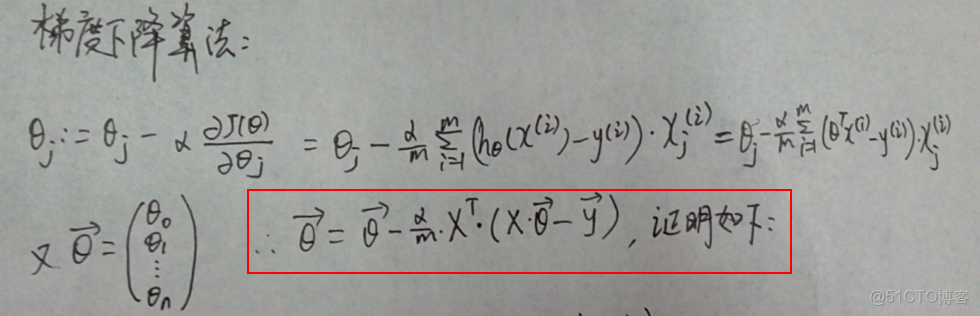 梯度下降算法:
θ_j := θ_j - α ∂J(θ)/∂θ_j = θ_j - α/m ∑_{i=1}^{m} (h_θ(x^{(i)}) - y^{(i)}) · x_j^{(i)} = θ_j - α/m ∑_{i=1}^{m} (θ^T x^{(i)} - y^{(i)}) · x_j^{(i)}
又 θ⃗ = (θ_0 θ_1 ⋮ θ_n) ∴ θ⃗ = θ⃗ - α/m · X^T · (X · θ⃗ - y⃗), 证明如下:
@51CTO博客